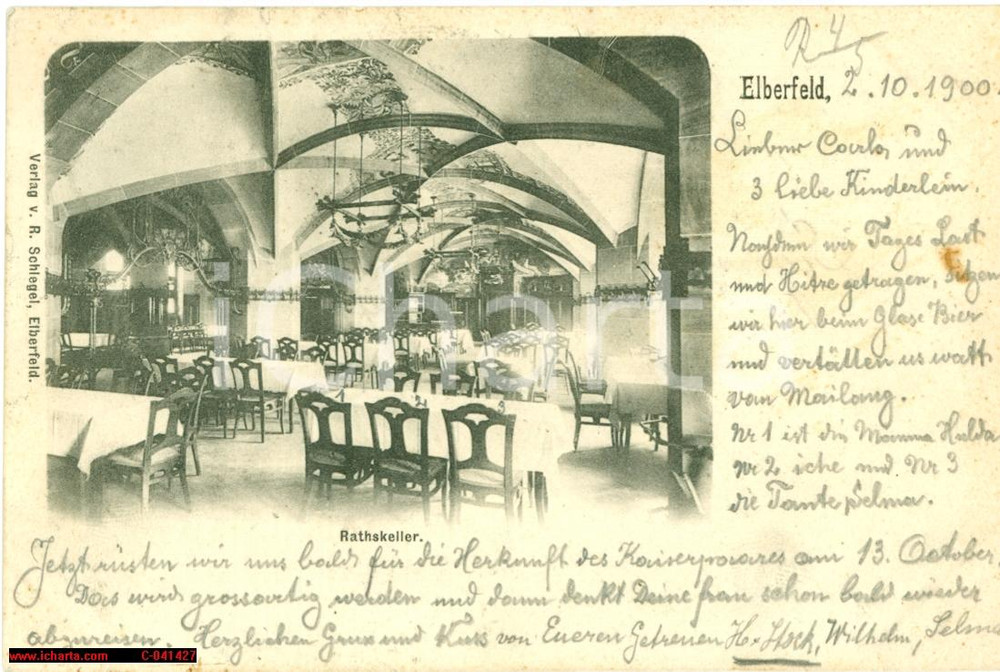 R 4/5
Elberfeld, 2.10.1900.
Lieber Carlo und
3 liebe Kinderlein.
Nachdem wir Tages Last
und Hitze getragen, sitzen
wir hier beim Glase Bier
und vertällen us watt
van Mailang.
Nr 1 ist die Mamma Hulda
Nr 2 iche und Nr 3
die Tante Selma.
Verlag v. R. Schlegel, Elberfeld.
iCharta
Rathskeller.
Jetzt rüsten wir uns bald für die Herkunft des Kaiserpaares am 13. October.
Das wird grossartig werden und dann denkt Deine frau schon bald wieder
abzureisen. Herzlichen Gruss und Kuss von Eueren Getreuen H. Wilhelm, Selma
www.icharta.com C-041427